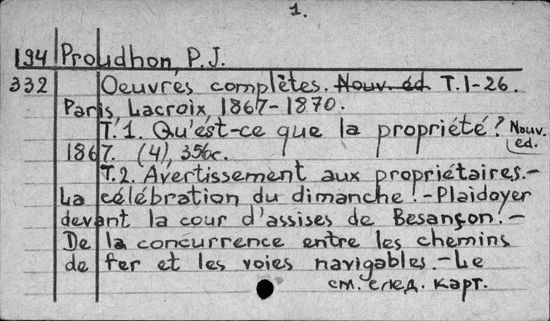 1.
194 Proudhon, P.J.
332 Oeuvres complètes. Nouv. éd. T.1-26.
Paris, Lacroix, 1867-1870.
T.1. Qu'est-ce que la propriété? Nouv. ed.
1867. (4), 356c.
T.2. Avertissement aux propriétaires.-
La célébration du dimanche.-Plaidoyer
devant la cour d'assises de Besançon.-
De la concurrence entre les chemins
de fer et les voies navigables.-Le
см. след. карт.